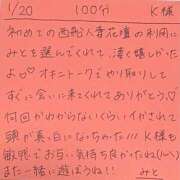 1/20 100分 K様
初めての西船人妻花壇の利用に
みとを選んでくれて、凄く嬉しかった
よ♡オキニトークでやり取りして
すぐに会いに来てくれてありがとう♡
何回かわからないくらいイかされて
頭が真白になっちゃた!!! K様も
敏感でお互い気持ち良かったね(^^)
また一緒に遊ぼうね!! みと